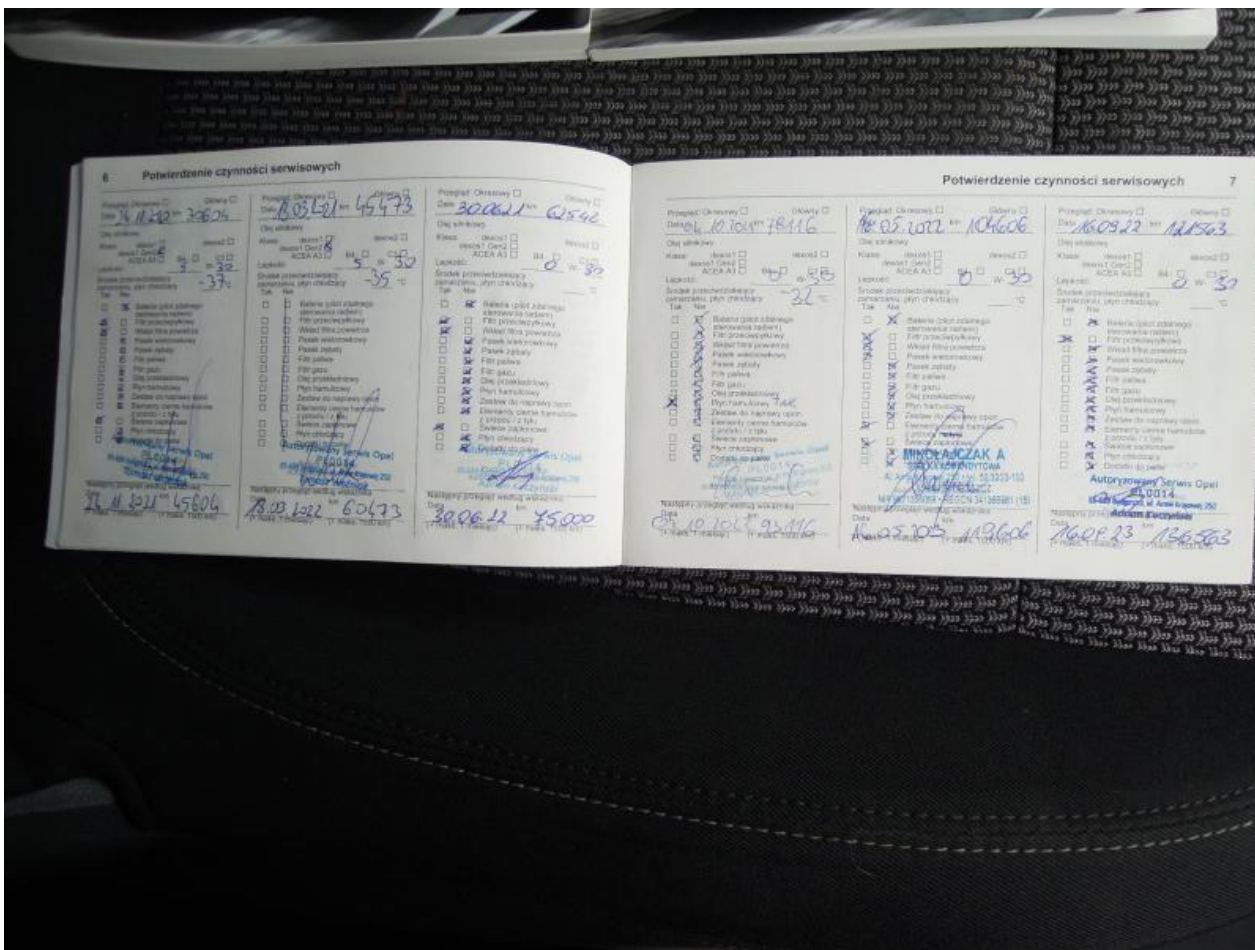 6 Potwierdzenie czynności serwisowych
Przegląd: Okresowy Główny
Data km 30604
Olej silnikowy
Klasa: dexos1 dexos2
dexos1 Gen2
ACEA A3 B4 C3
Lepkość: 5 W- 30
Środek przeciwdziałający
zamarzaniu, płyn chłodzący -37 °C
Tak Nie
Bateria (pilot zdalnego
sterowania radiem)
Filtr przeciwpyłkowy
Wkład filtra powietrza
Pasek wielorowkowy
Pasek zębaty
Filtr paliwa
Filtr gazu
Olej przekładniowy
Płyn hamulcowy
Zestaw do naprawy opon
Elementy cierne hamulców
z przodu / z tyłu
Świece zapłonowe
Płyn chłodzący
Autoryzowany Serwis Opel
PL0014
Następny przegląd według wskaźnika
24 11 2021 45604
Przegląd: Okresowy Główny
Data 18.03.2021 km 45473
Olej silnikowy
Klasa: dexos1 dexos2
dexos1 Gen2
ACEA A3 B4 C3
Lepkość: 5 W- 30
Środek przeciwdziałający
zamarzaniu, płyn chłodzący -35 °C
Tak Nie
Bateria (pilot zdalnego
sterowania radiem)
Filtr przeciwpyłkowy
Wkład filtra powietrza
Pasek wielorowkowy
Pasek zębaty
Filtr paliwa
Filtr gazu
Olej przekładniowy
Płyn hamulcowy
Zestaw do naprawy opon
Elementy cierne hamulców
z przodu / z tyłu
Świece zapłonowe
Płyn chłodzący
Autoryzowany Serwis Opel
PL0014
Następny przegląd według wskaźnika
18.03.2022 km 60473
Przegląd: Okresowy Główny
Data 30.06.21 km 62542
Olej silnikowy
Klasa: dexos1 dexos2
dexos1 Gen2
ACEA A3 B4 C3
Lepkość: 0 W- 30
Środek przeciwdziałający
zamarzaniu, płyn chłodzący °C
Tak Nie
Bateria (pilot zdalnego
sterowania radiem)
Filtr przeciwpyłkowy
Wkład filtra powietrza
Pasek wielorowkowy
Pasek zębaty
Filtr paliwa
Filtr gazu
Olej przekładniowy
Płyn hamulcowy
Zestaw do naprawy opon
Elementy cierne hamulców
z przodu / z tyłu
Świece zapłonowe
Płyn chłodzący
Dodatki do paliw
Następny przegląd według wskaźnika
Data km
30.06.22 75.000
Potwierdzenie czynności serwisowych 7
Przegląd: Okresowy Główny
Data 04.10.2021 km 78116
Olej silnikowy
Klasa: dexos1 dexos2
dexos1 Gen2
ACEA A3 B4 C3
Lepkość: 0 W- 30
Środek przeciwdziałający
zamarzaniu, płyn chłodzący -32 °C
Tak Nie
Bateria (pilot zdalnego
sterowania radiem)
Filtr przeciwpyłkowy
Wkład filtra powietrza
Pasek wielorowkowy
Pasek zębaty
Filtr paliwa
Filtr gazu
Olej przekładniowy
Płyn hamulcowy TAK
Zestaw do naprawy opon
Elementy cierne hamulców
z przodu / z tyłu
Świece zapłonowe
Płyn chłodzący
Dodatki do paliw
Następny przegląd według wskaźnika
Data
10.2022 93116
Przegląd: Okresowy Główny
Data 16.05.2022 km 104606
Olej silnikowy
Klasa: dexos1 dexos2
dexos1 Gen2
ACEA A3 B4 C3
Lepkość: 0 W- 30
Środek przeciwdziałający
zamarzaniu, płyn chłodzący °C
Tak Nie
Bateria (pilot zdalnego
sterowania radiem)
Filtr przeciwpyłkowy
Wkład filtra powietrza
Pasek wielorowkowy
Pasek zębaty
Filtr paliwa
Filtr gazu
Olej przekładniowy
Płyn hamulcowy
Zestaw do naprawy opon
Elementy cierne hamulców
z przodu
Świece zapłonowe
MIKOŁAJCZAK A
SPÓŁKA KOMANDYTOWA
Następny przegląd według wskaźnika
Data km
119606
Przegląd: Okresowy Główny
Data 16.09.22 km 121563
Olej silnikowy
Klasa: dexos1 dexos2
dexos1 Gen2
ACEA A3 B4 C3
Lepkość: 0 W- 30
Środek przeciwdziałający
zamarzaniu, płyn chłodzący °C
Tak Nie
Bateria (pilot zdalnego
sterowania radiem)
Filtr przeciwpyłkowy
Wkład filtra powietrza
Pasek wielorowkowy
Pasek zębaty
Filtr paliwa
Filtr gazu
Olej przekładniowy
Płyn hamulcowy
Zestaw do naprawy opon
Elementy cierne hamulców
z przodu / z tyłu
Świece zapłonowe
Płyn chłodzący
Dodatki do paliw
Autoryzowany Serwis Opel
PL0014
Adrian
Następny przegląd według wskaźnika
Data km
16.09.23 136563